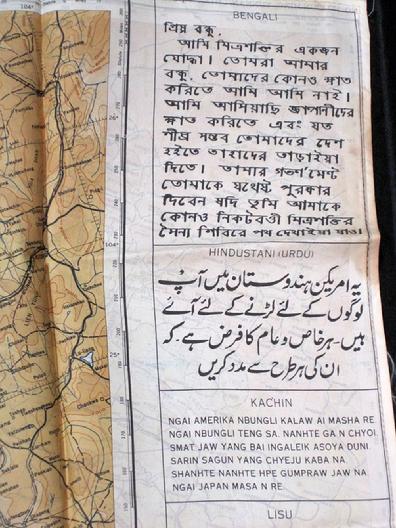 BENGALI
প্রিয় বন্ধু,
আমি মিত্রশক্তির একজন
যোদ্ধা। তোমরা আমার
বন্ধু. তোমাদের কোনও ক্ষতি
করিতে আমি আসি নাই।
আমি আসিয়াছি জাপানীদের
ক্ষতি করিতে এবং যত
শীঘ্র সম্ভব তোমাদের দেশ
হইতে তাহাদের তাড়াইয়া
দিতে। আমার গভর্ণমেন্ট
তোমাকে যথেষ্ট পুরস্কার
দিবেন যদি তুমি আমাকে
কোনও নিকটবর্তী মিত্রশক্তির
সৈন্য শিবিরে পথ দেখাইয়া যাও।
HINDUSTANI (URDU)
یہ امریکن ہندوستان میں آپ
لوگوں کے لئے لڑنے کے لئے آئے
ہیں۔ ہر خاص و عام کا فرض ہے کہ
ان کی ہر طرح سے مدد کریں
KACHIN
NGAI AMERIKA NBUNGLI KALAW AI MASHA RE
NGAI NBUNGLI TENG SA. NANHTE GA N CHYOI
SMAT JAW YANG BAI INGALEIK ASOYA DUNI
SARIN SAGUN YANG CHYEJU KABA NA
SHANHTE NANHTE HPE GUMPRAW JAW NA
NGAI JAPAN MASA N RE.
LISU
104°
26°
104°
25°